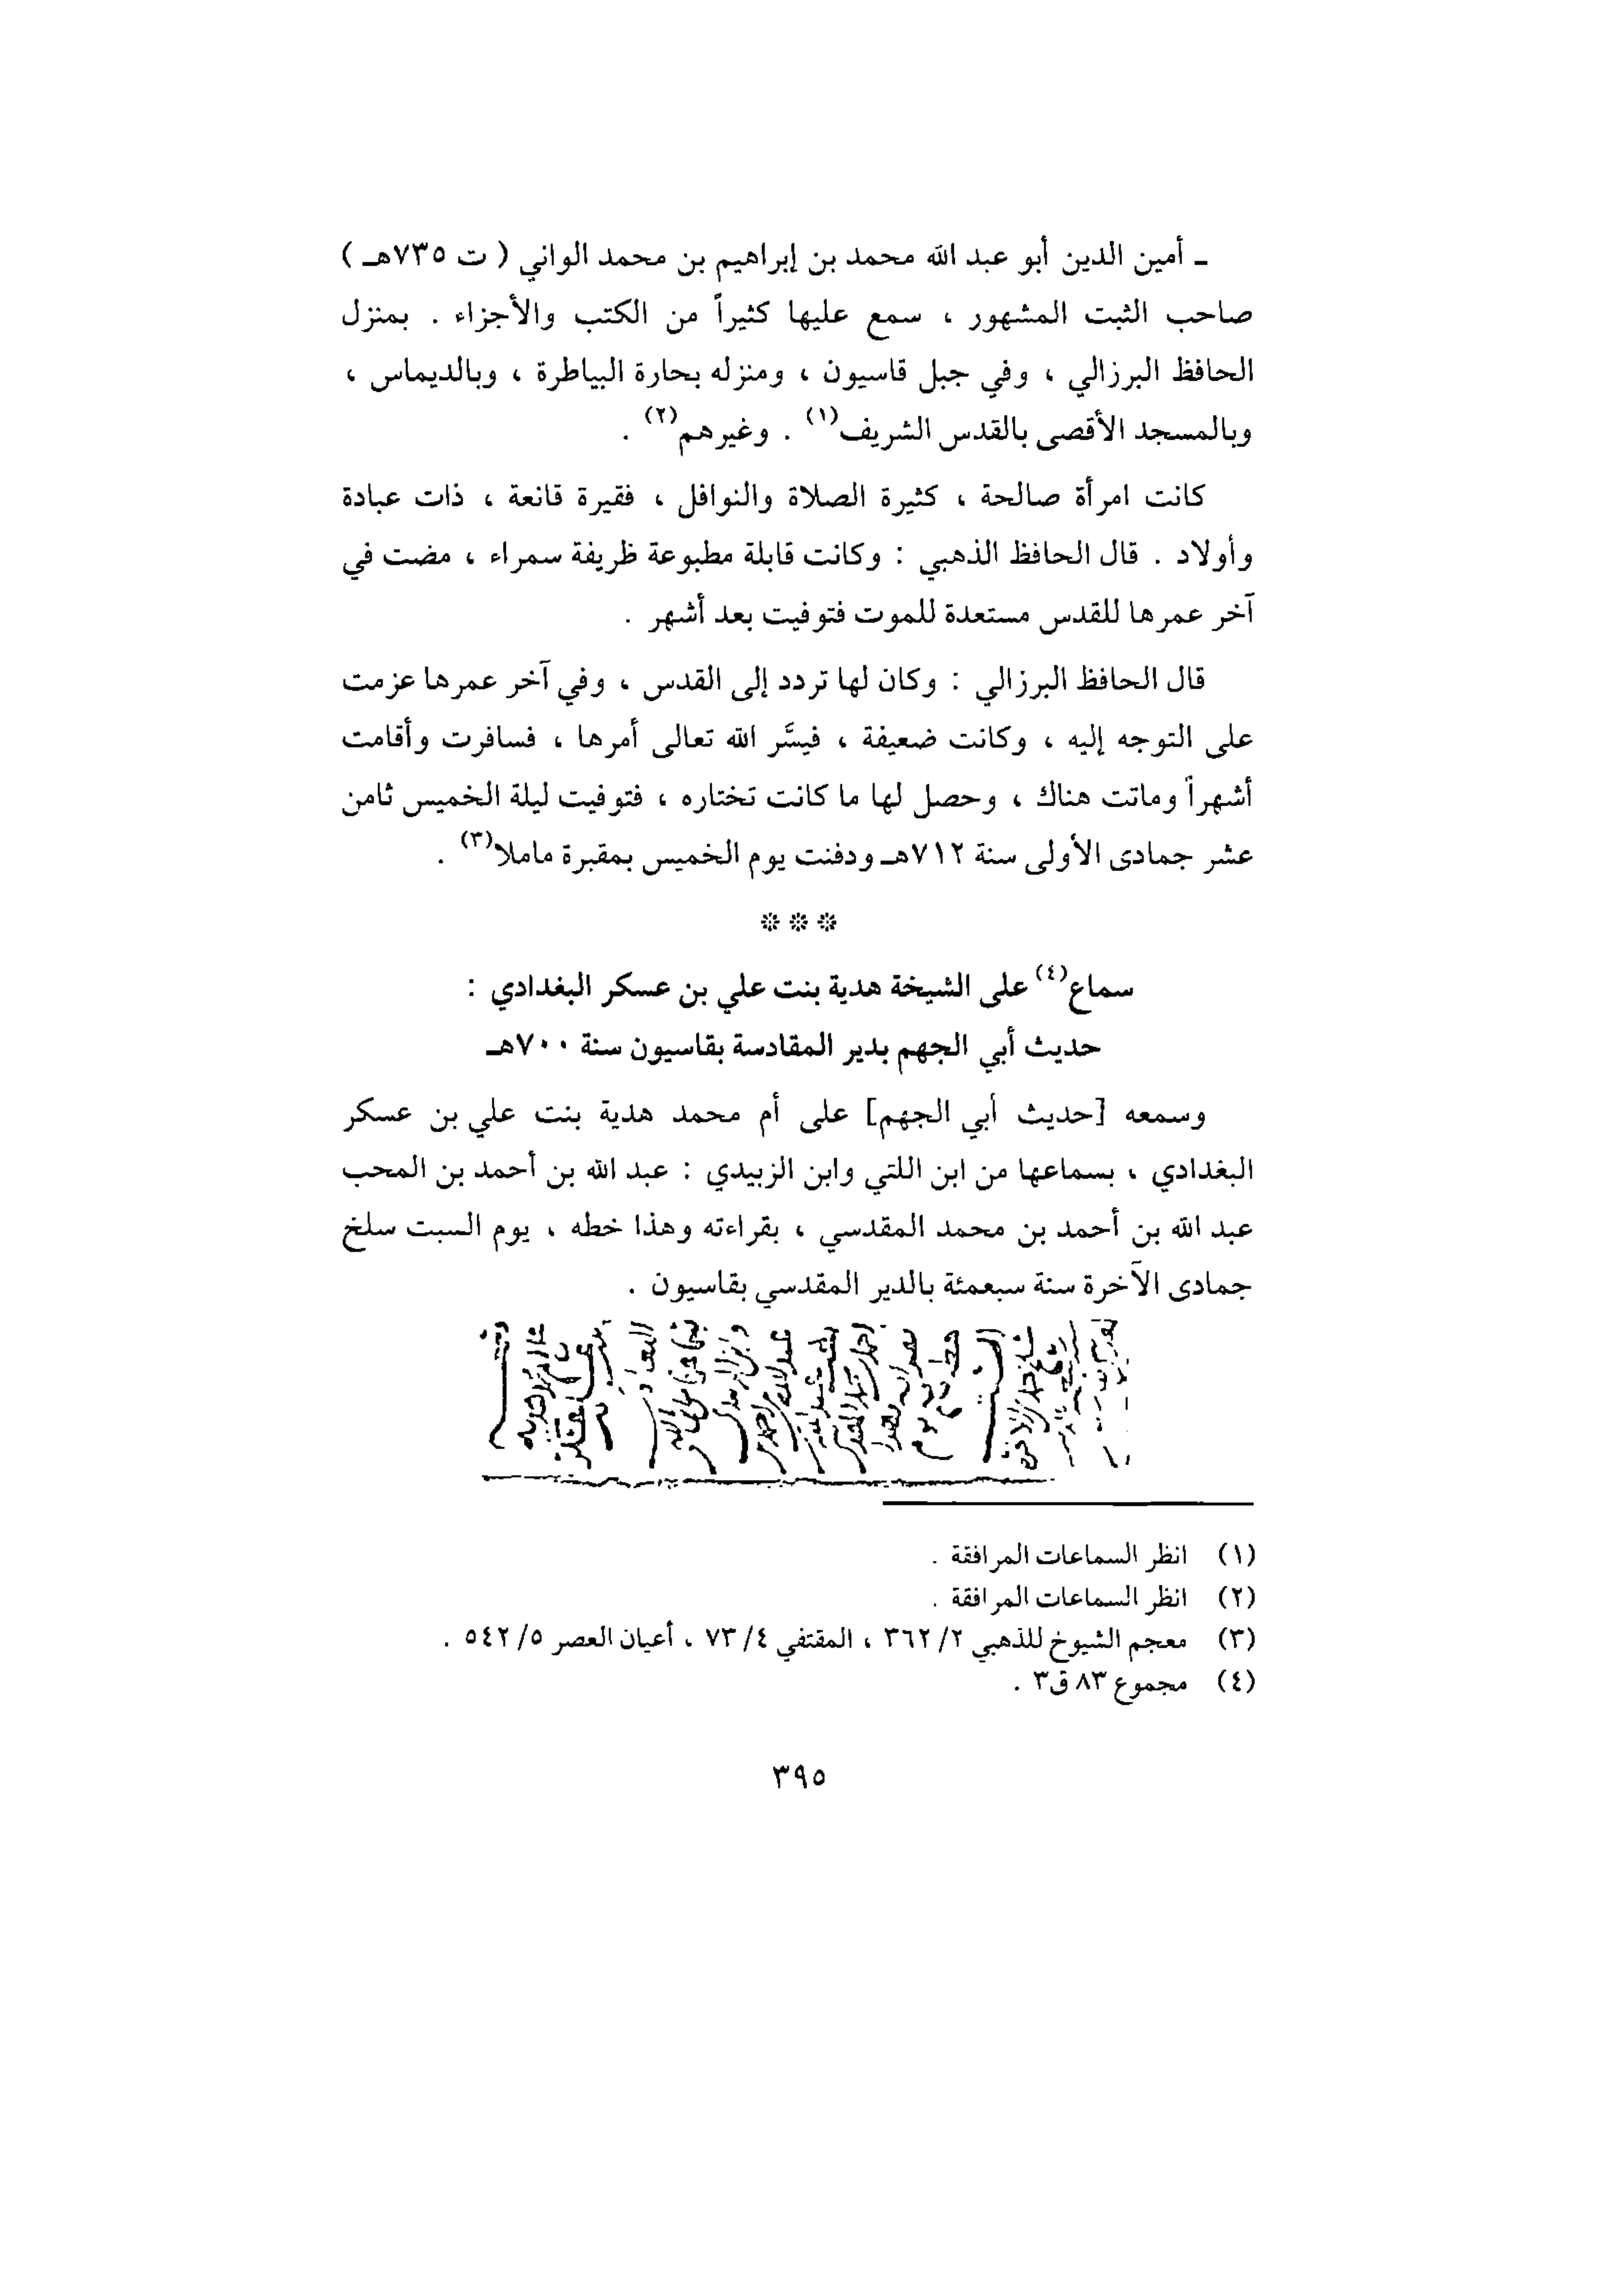 ـ أمين الدين أبو عبد الله محمد بن إبراهيم بن محمد الواني ( ت ٧٣٥هـ )
صاحب الثبت المشهور ، سمع عليها كثيراً من الكتب والأجزاء . بمنزل
الحافظ البرزالي ، وفي جبل قاسيون ، ومنزله بحارة البياطرة ، وبالديماس ،
وبالمسجد الأقصى بالقدس الشريف(١) . وغيرهم(٢) .
كانت امرأة صالحة ، كثيرة الصلاة والنوافل ، فقيرة قانعة ، ذات عبادة
وأولاد . قال الحافظ الذهبي : وكانت قابلة مطبوعة ظريفة سمراء ، مضت في
آخر عمرها للقدس مستعدة للموت فتوفيت بعد أشهر .
قال الحافظ البرزالي : وكان لها تردد إلى القدس ، وفي آخر عمرها عزمت
على التوجه إليه ، وكانت ضعيفة ، فيسَّر الله تعالى أمرها ، فسافرت وأقامت
أشهراً وماتت هناك ، وحصل لها ما كانت تختاره ، فتوفيت ليلة الخميس ثامن
عشر جمادى الأولى سنة ٧١٢هـ ودفنت يوم الخميس بمقبرة ماملا(٣) .
❊ ❊ ❊
سماع(٤) على الشيخة هدية بنت علي بن عسكر البغدادي :
حديث أبي الجهم بدير المقادسة بقاسيون سنة ٧٠٠هـ
وسمعه [حديث أبي الجهم] على أم محمد هدية بنت علي بن عسكر
البغدادي ، بسماعها من ابن اللتي وابن الزبيدي : عبد الله بن أحمد بن المحب
عبد الله بن أحمد بن محمد المقدسي ، بقراءته وهذا خطه ، يوم السبت سلخ
جمادى الآخرة سنة سبعمئة بالدير المقدسي بقاسيون .
(١) انظر السماعات المرافقة .
(٢) انظر السماعات المرافقة .
(٣) معجم الشيوخ للذهبي ٢/ ٣٦٢ ، المقتفي ٤/ ٧٣ ، أعيان العصر ٥/ ٥٤٢ .
(٤) مجموع ٨٣ ق٣ .
٣٩٥